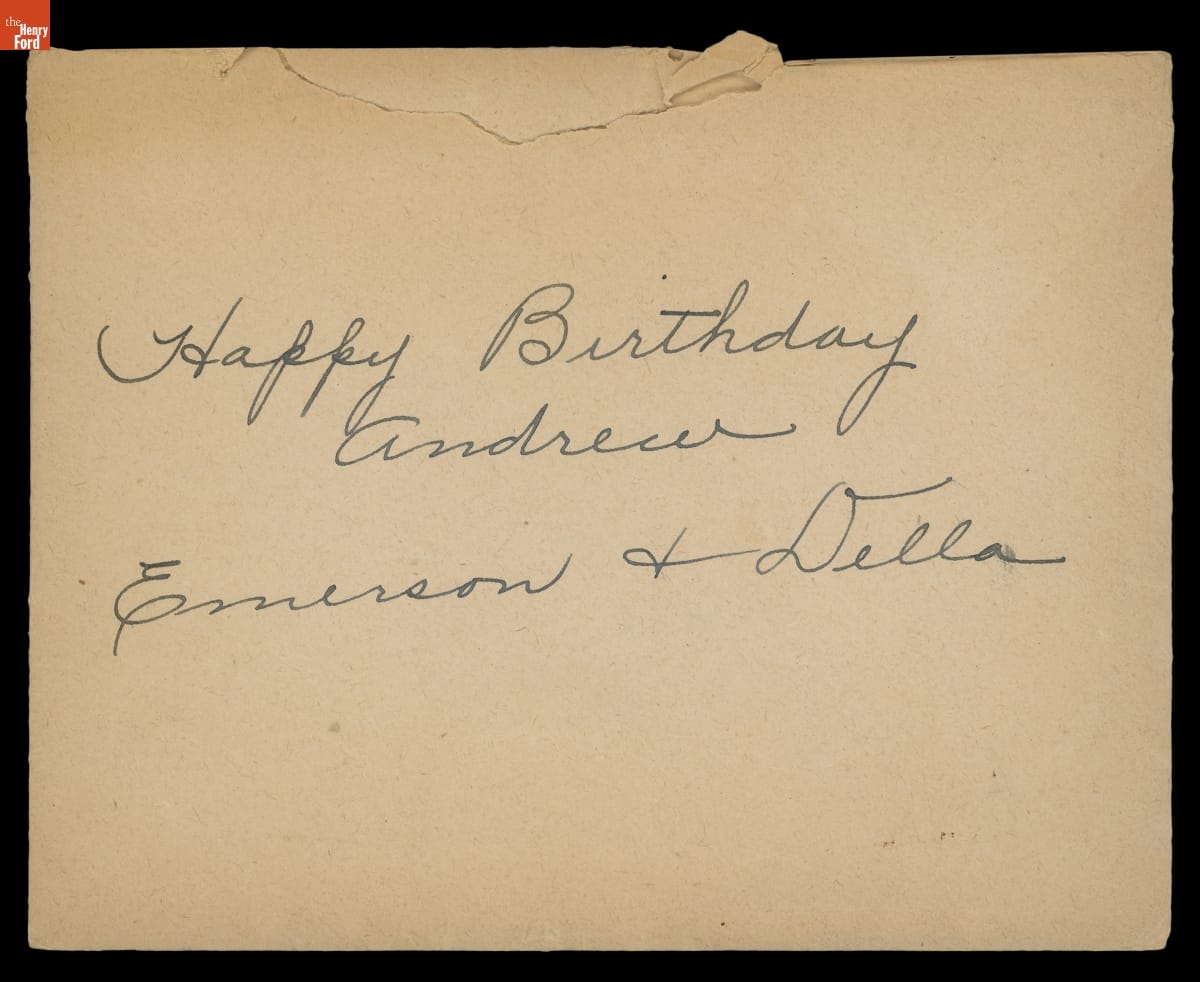 the
Henry
Ford
Happy Birthday
Andrew
Emerson & Della